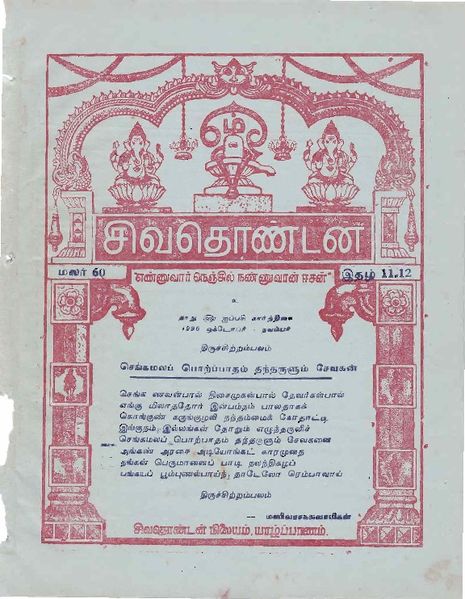 சிவதொண்டன்
மலர் 60
"எண்ணுவார் நெஞ்சில் நண்ணுவான் ஈசன்"
இதழ் 11.12
உ
தாது ௵ ஐப்பசி கார்த்திகை
1996 ஒக்டோபர் - நவம்பர்
திருச்சிற்றம்பலம்
செங்கமலப் பொற்பாதம் தந்தருளும் சேவகன்
செங்க ணவன்பால் திசைமுகன்பால் தேவர்கள்பால்
எங்கு மிலாததோர் இன்பம்நம் பாலதாக்
கொங்குண் கருங்குழலி நந்தம்மைக் கோதாட்டி
இங்குநம் இல்லங்கள் தோறும் எழுந்தருளிச்
செங்கமலப் பொற்பாதம் தந்தருளும் சேவகனை
அங்கண் அரசை அடியோங்கட் காரமுதை
நங்கள் பெருமானைப் பாடி நலந்திகழப்
பங்கயப் பூம்புனல்பாய்ந் தாடேலோ ரெம்பாவாய்
திருச்சிற்றம்பலம்
- மணிவாசகசுவாமிகள்
சிவதொண்டன் நிலையம், யாழ்ப்பாணம்.